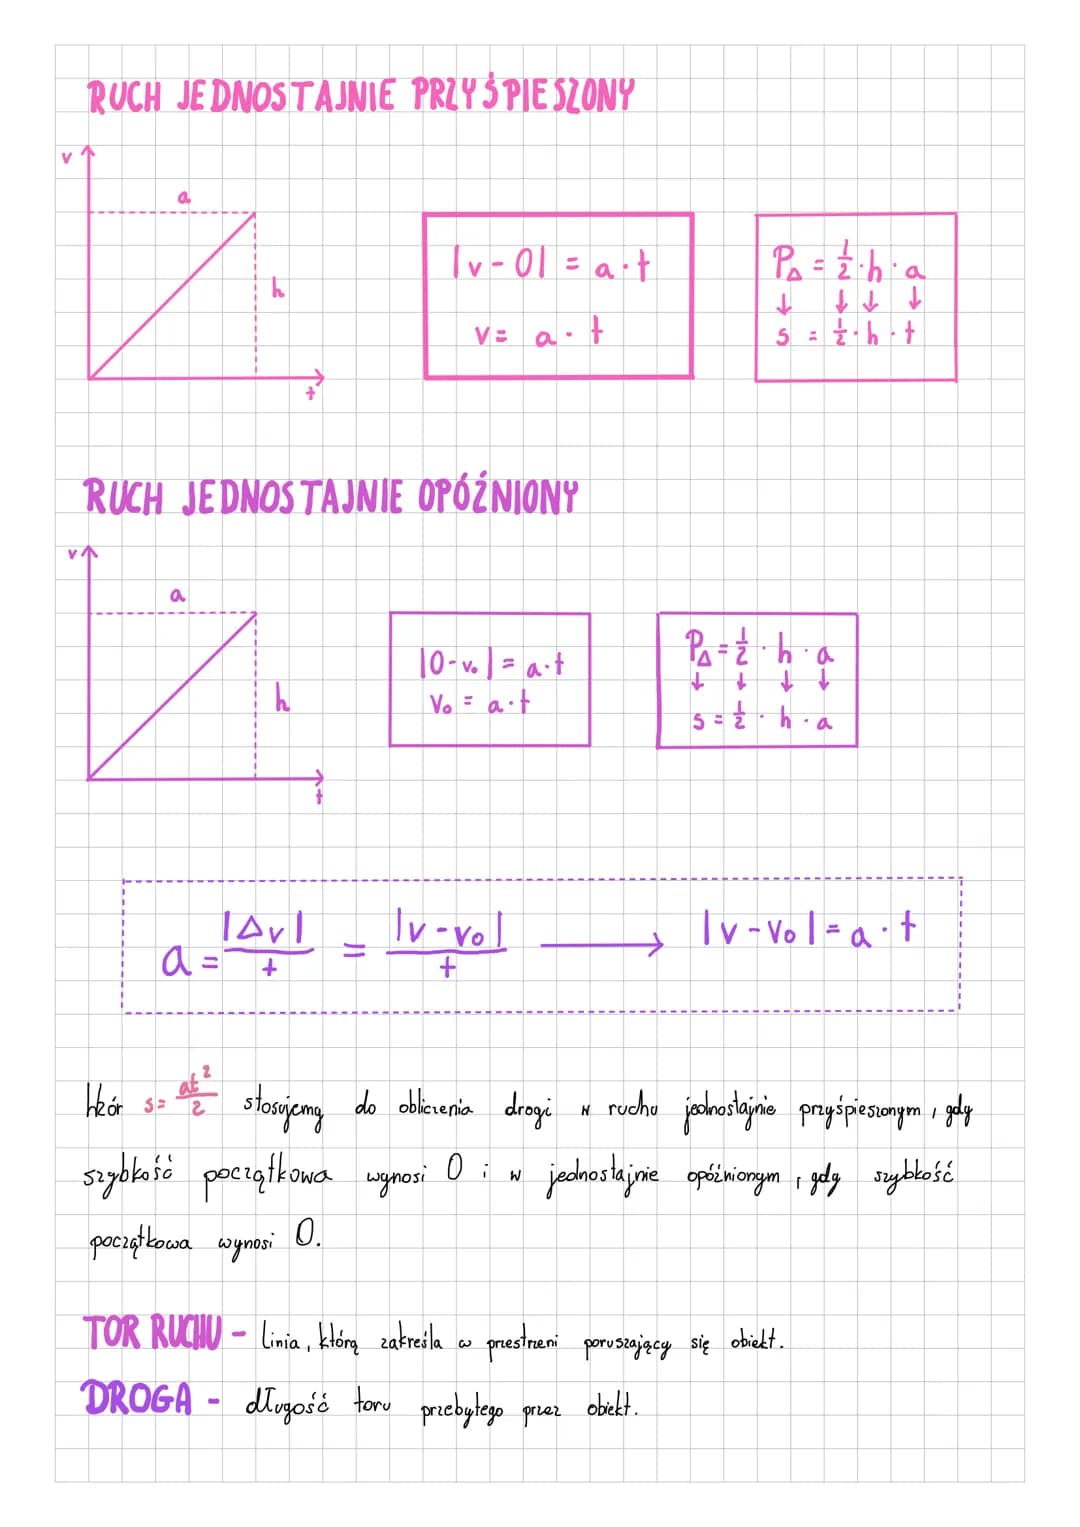 RUCH JEDNOSTAJNIE PRZYŚPIESZONY
v
a
h
t
|v-0| = a·t
v= a·t
P△ = 1/2·h·a
↓ ↓ ↓ ↓
s = 1/2·h·t
RUCH JEDNOSTAJNIE OPÓŹNIONY
v
a
h
t
|0-v₀| = a·t
V₀ = a·t
P△ = 1/2·h·a
↓ ↓ ↓ ↓
s = 1/2·h·a
a = |△v|/t = |v-v₀|/t → |v-v₀| = a·t
Wzór s= at²/2 stosujemy do obliczenia drogi w ruchu jednostajnie przyśpieszonym, gdy
szybkość początkowa wynosi 0 i w jednostajnie opóźnionym, gdy szybkość
początkowa wynosi 0.
TOR RUCHU - linia, którą zakreśla w przestrzeni poruszający się obiekt.
DROGA - długość toru przebytego przez obiekt.